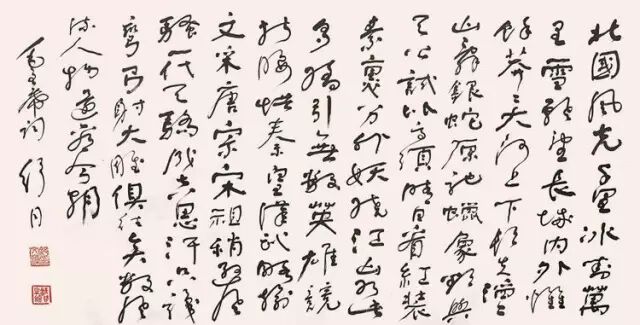 北國風光千里冰封萬
里雪飄望長城內外惟
餘莽莽大河上下頓失滔滔
山舞銀蛇原馳蠟象欲與
天公試比高須晴日看紅裝
素裹分外妖嬈江山如此
多嬌引無數英雄競
折腰惜秦皇漢武略輸
文采唐宗宋祖稍遜風
騷一代天驕成吉思汗只識
彎弓射大雕俱往矣數風
流人物還看今朝
毛主席詞